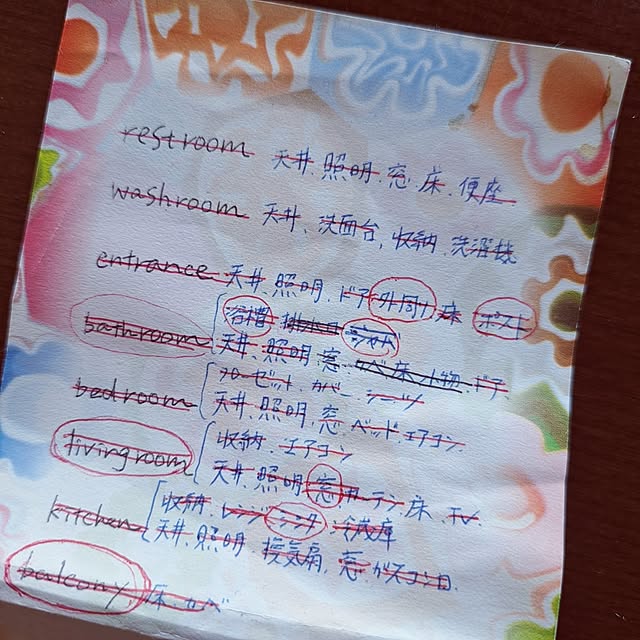 restroom 天井、照明、窓、床、便座
washroom 天井、洗面台、収納、洗濯機
entrance 天井、照明、ドア外向け 床 ポスト
浴槽 排水口 シャワー
bathroom 天井、照明 窓 カベ 床 小物 ドア
クローゼット カバー シーツ
bedroom 天井、照明、窓 ベッド エアコン
収納、エアコン
livingroom 天井、照明 窓 カーテン 床 TV
収納、レンジ シンク 冷蔵庫
kitchen 天井、照明、換気扇、窓 ガスコンロ
balcony 床、カベ